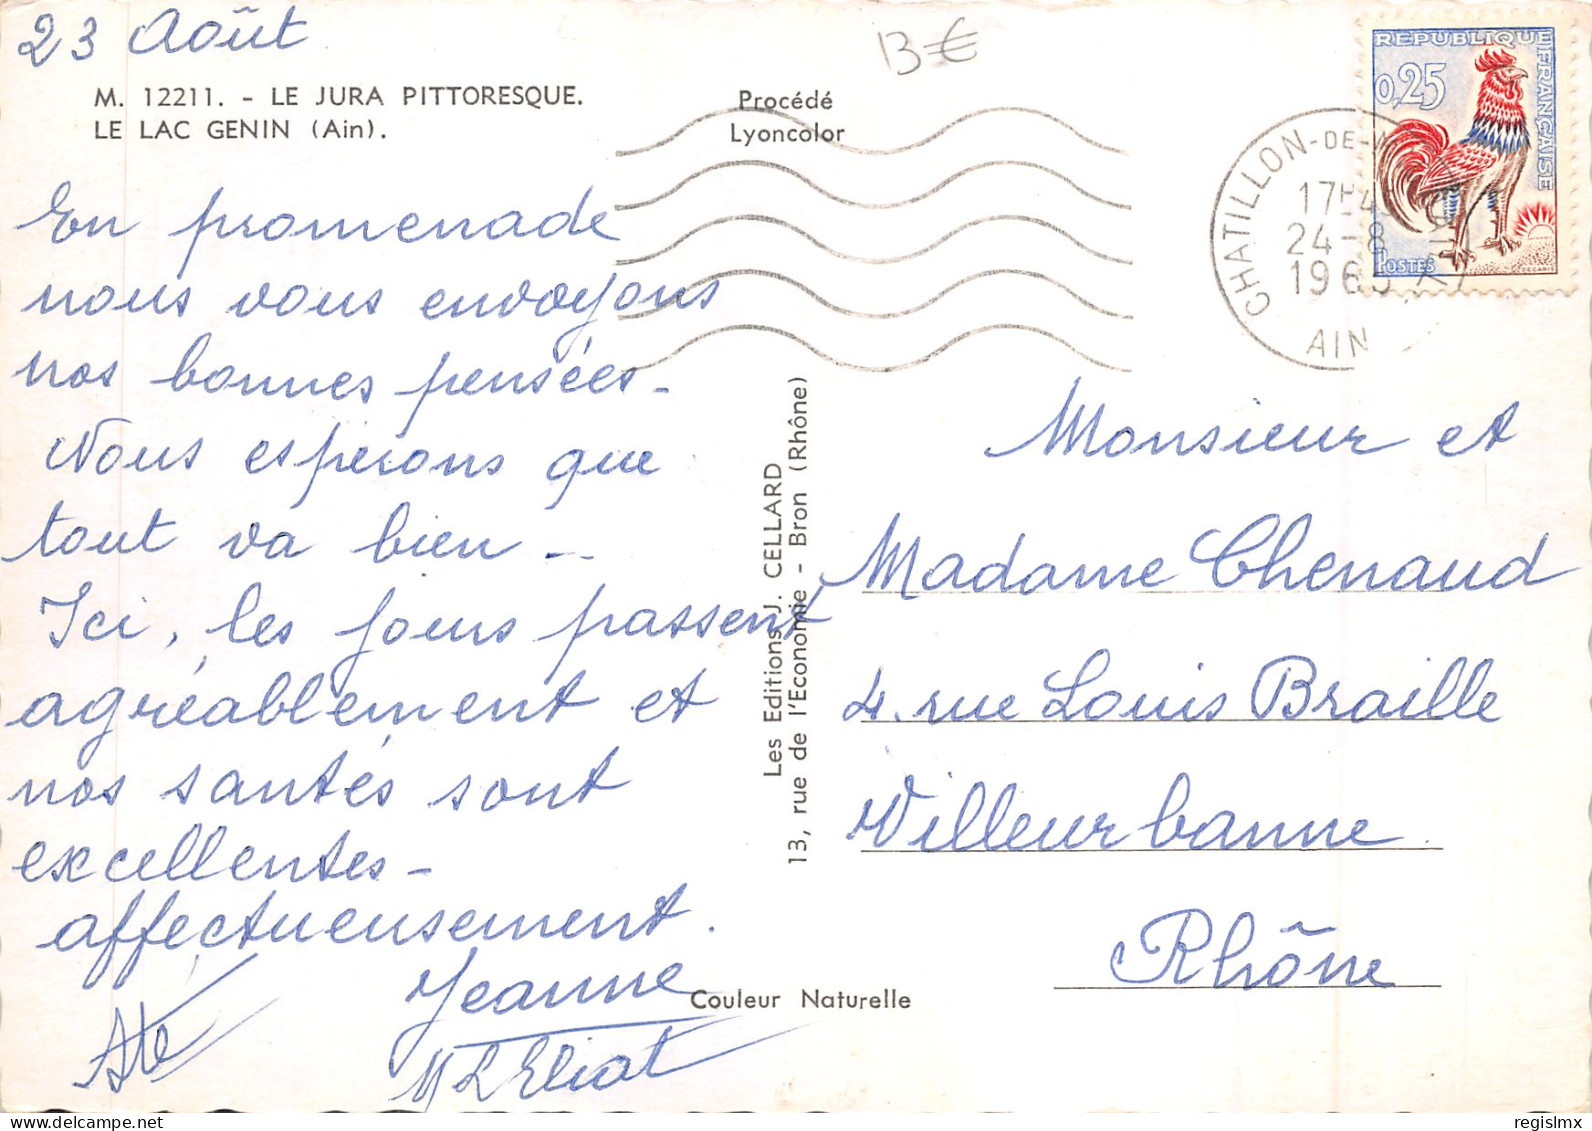 23 Août
13 €
M. 12211. - LE JURA PITTORESQUE.
LE LAC GENIN (Ain).
Procédé
Lyoncolor
REPUBLIQUE FRANÇAISE
0,25
POSTES
DECARIS
CHATILLON-DE-
17H45
24-8
1965
AIN
En promenade
nous vous envoyons
nos bonnes pensées_
Nous espérons que
tout va bien _
Ici, les jours passent
agréablement et
nos santés sont
excellentes_
affectueusement.
Jeanne
Les Editions J. CELLARD
13, rue de l'Economie - Bron (Rhône)
Couleur Naturelle
Monsieur et
Madame Chenaud
4. rue Louis Braille
Villeurbanne.
Rhône
delcampe.net
regislmx